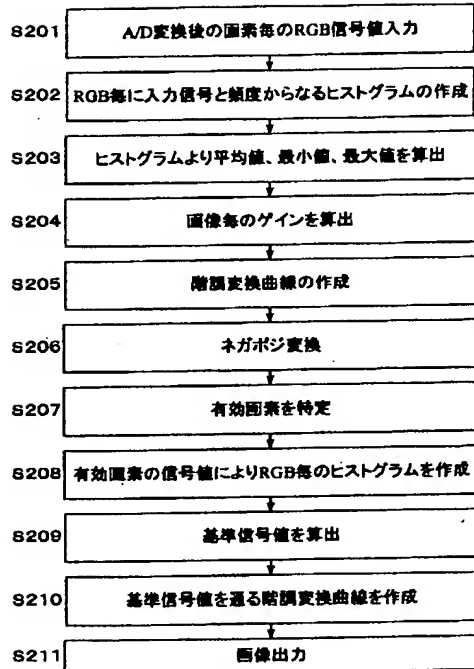 S201 A/D変換後の画素毎のRGB信号値入力
S202 RGB毎に入力信号と頻度からなるヒストグラムの作成
S203 ヒストグラムより平均値、最小値、最大値を算出
S204 画像毎のゲインを算出
S205 階調変換曲線の作成
S206 ネガポジ変換
S207 有効画素を特定
S208 有効画素の信号値によりRGB毎のヒストグラムを作成
S209 基準信号値を算出
S210 基準信号値を通る階調変換曲線を作成
S211 画像出力